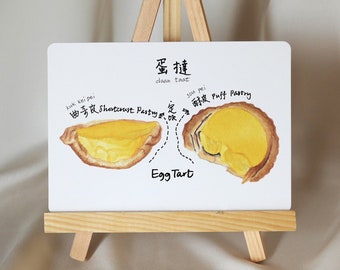 蛋撻
daan taat
kuk kei pei
曲奇皮 Shortcrust Pastry
sou pei
酥皮 Puff Pastry
Egg Tart